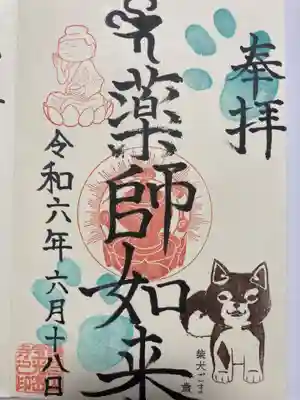 奉拝
薬師如来
令和六年六月十八日
柴犬ごま